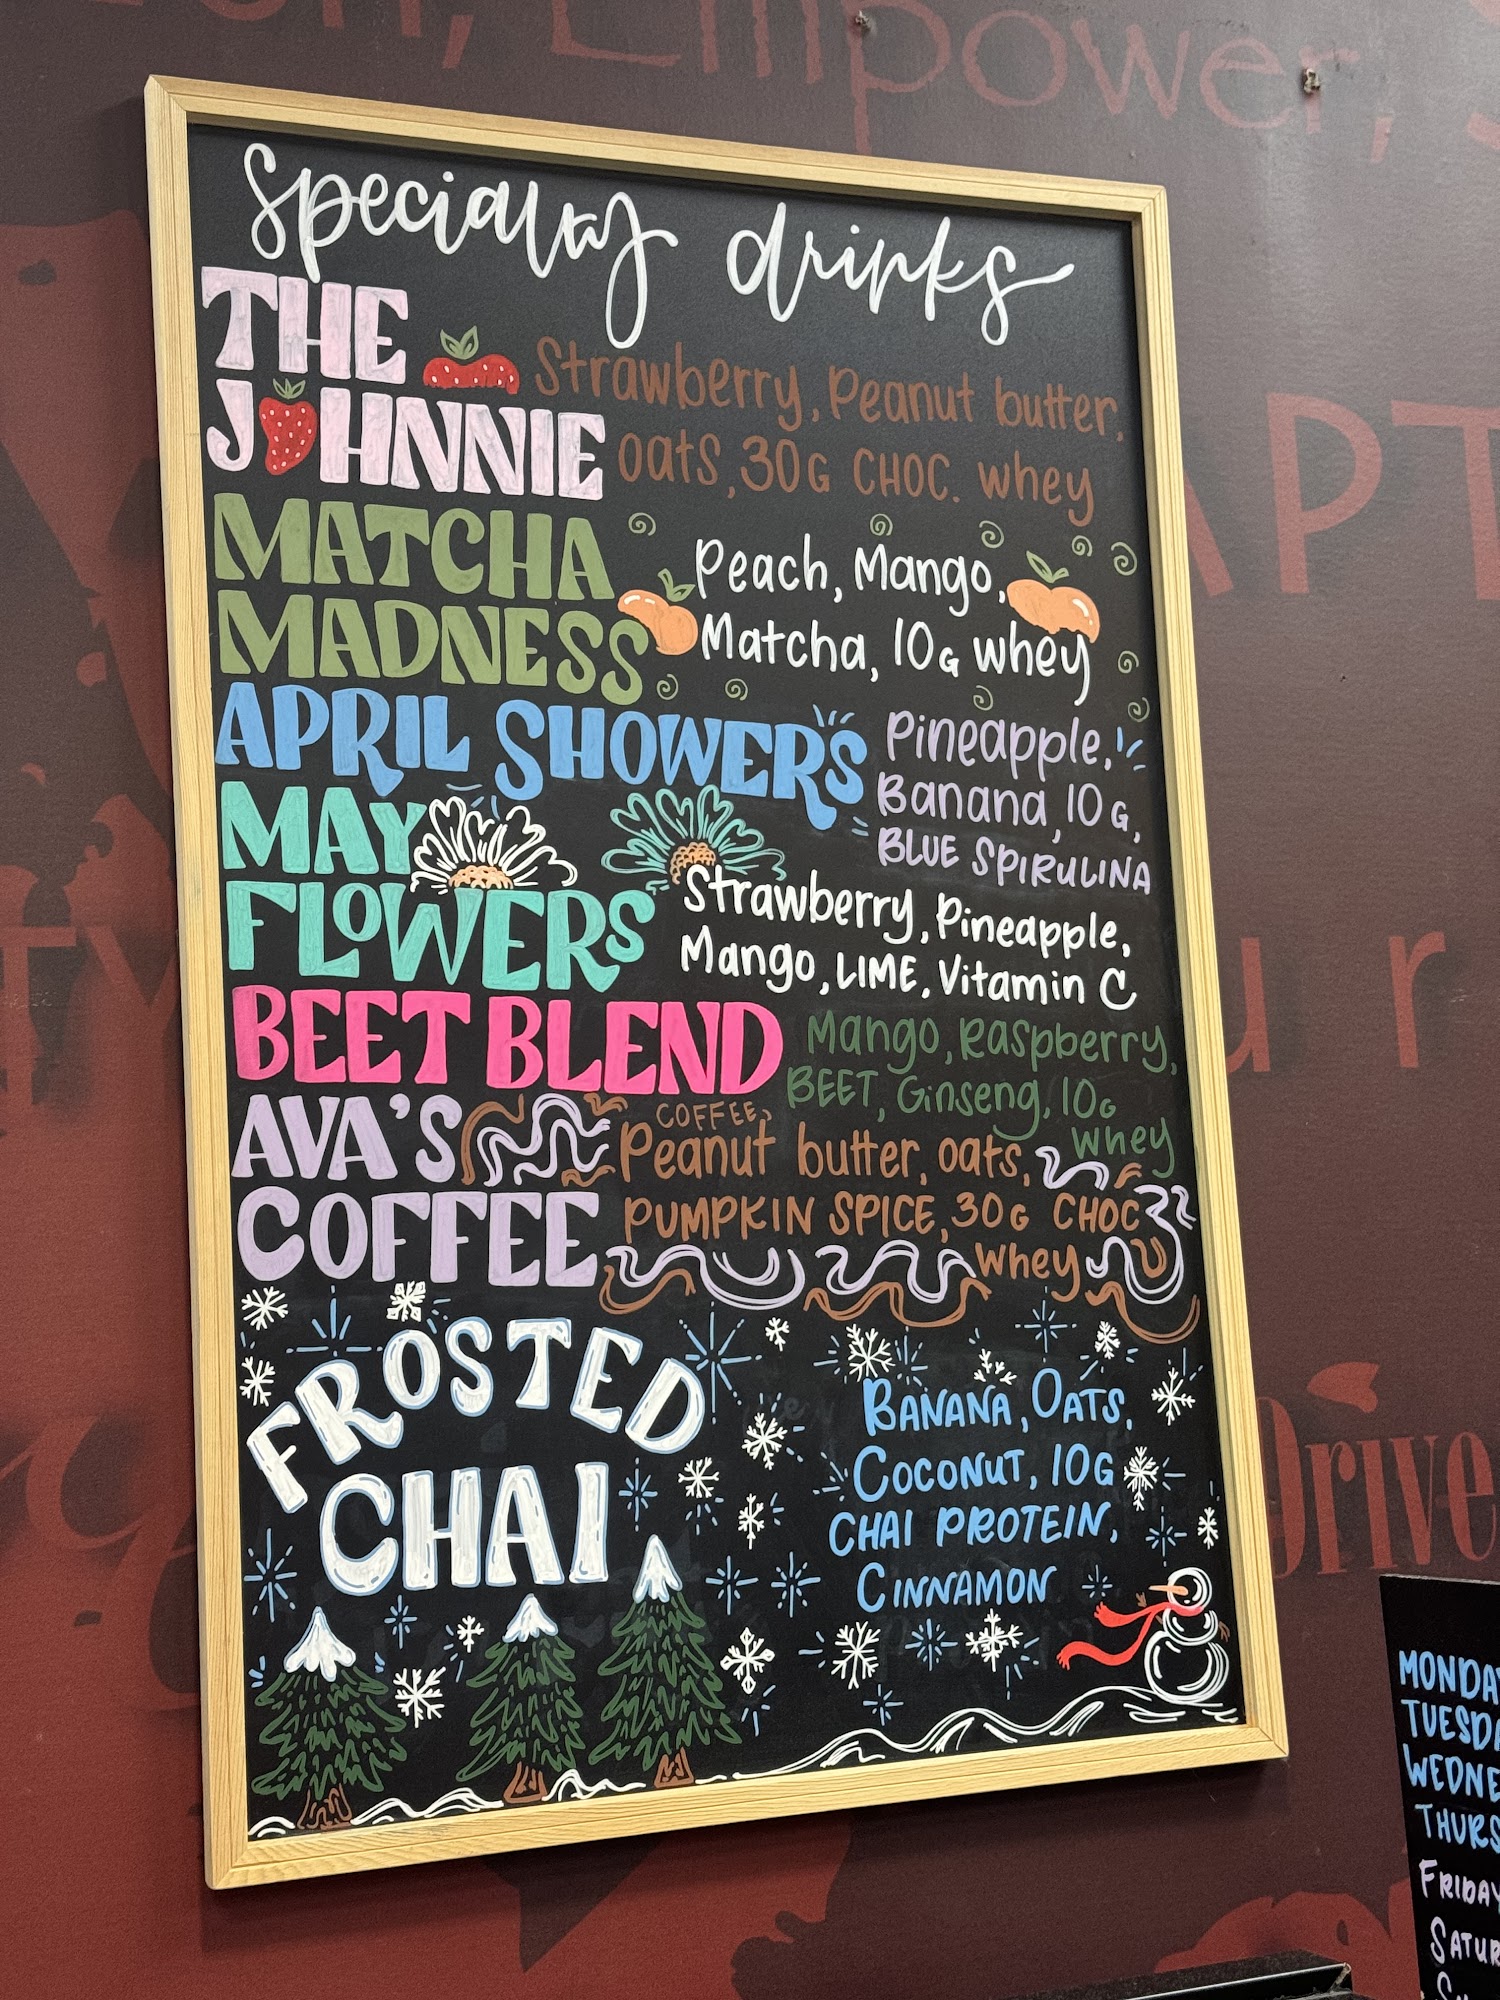 Empower,
specialty drinks
THE
JOHNNIE
Strawberry, Peanut butter,
oats, 30G CHOC. whey
MATCHA
MADNESS
Peach, Mango,
Matcha, 10G whey
APRIL SHOWERS
Pineapple,
Banana, 10G,
BLUE SPIRULINA
MAY
FLOWERS
Strawberry, Pineapple,
Mango, LIME, Vitamin C
BEET BLEND
Mango, Raspberry,
BEET, Ginseng, 10G
whey
AVA'S
COFFEE
COFFEE,
Peanut butter, oats,
PUMPKIN SPICE, 30G CHOC
whey
FROSTED
CHAI
BANANA, OATS,
COCONUT, 10G
CHAI PROTEIN,
CINNAMON
Drive
MONDA
TUESDA
WEDNE
THURS
FRIDAY
SATUR